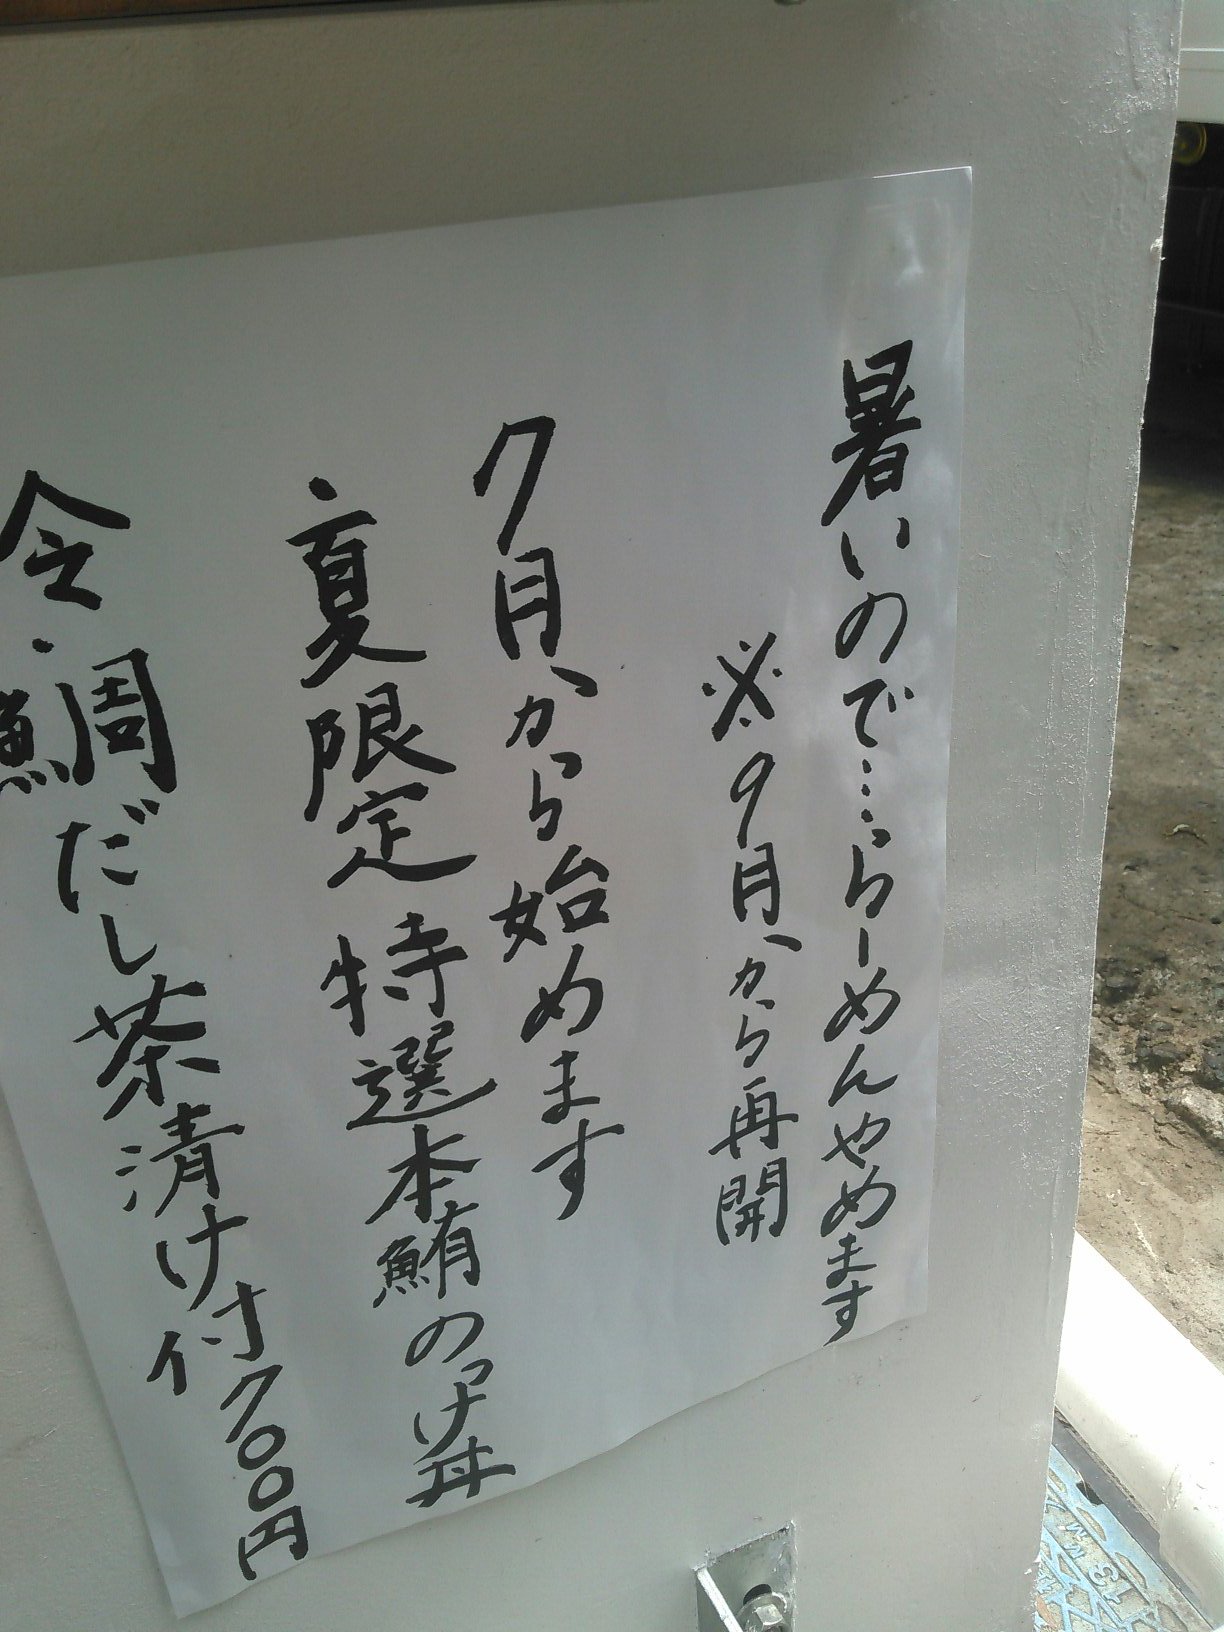 暑いので……らーめんやめます
※9月から再開
7月から始め​ます
夏限定 特選本鮪のっけ丼
令・鯛だし茶漬け付700円